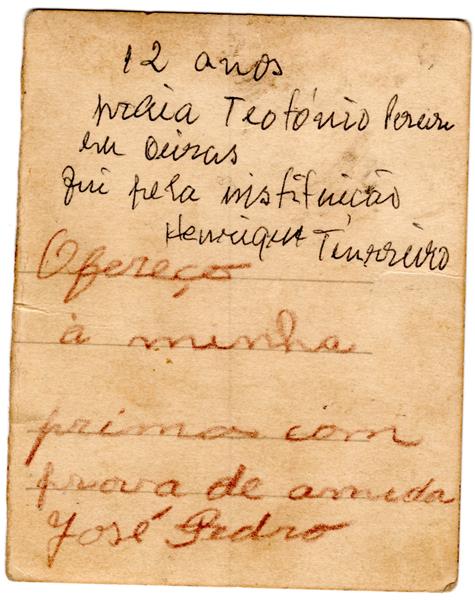 12 anos
praia Teotónio Pereira
em Oeiras
fui pela instituição
Henrique Tenreiro
Ofereço
à minha
prima com
prova de amizda
José Pedro